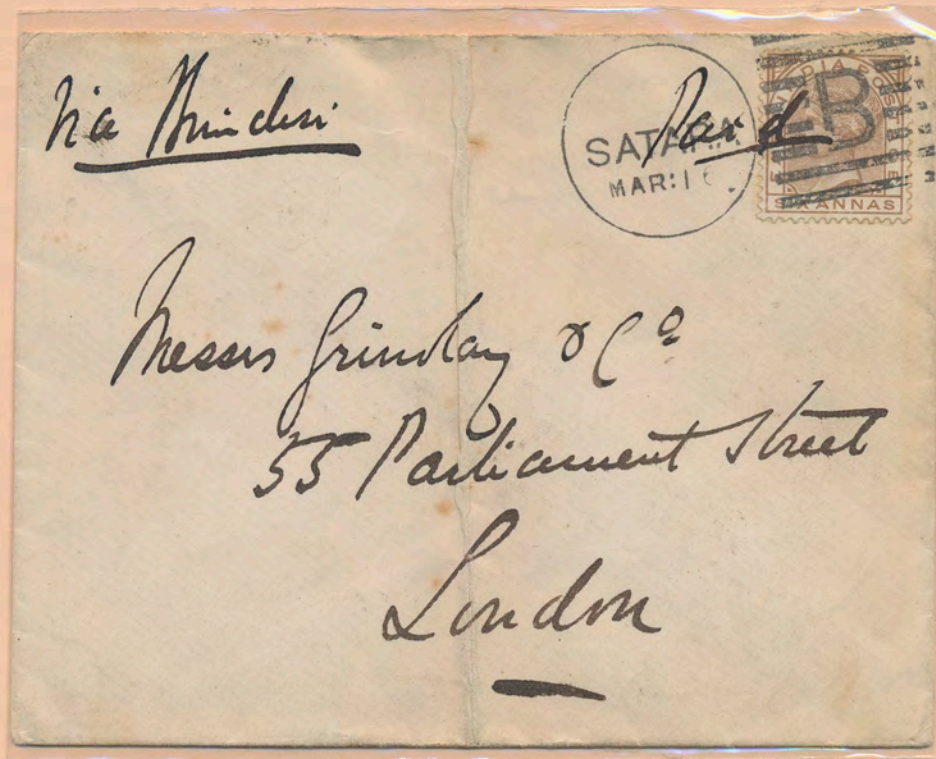 Via Brindisi
Paid
SATARA
MAR:16
B
SIX ANNAS
Messrs Grindlay & Co
55 Parliament Street
London